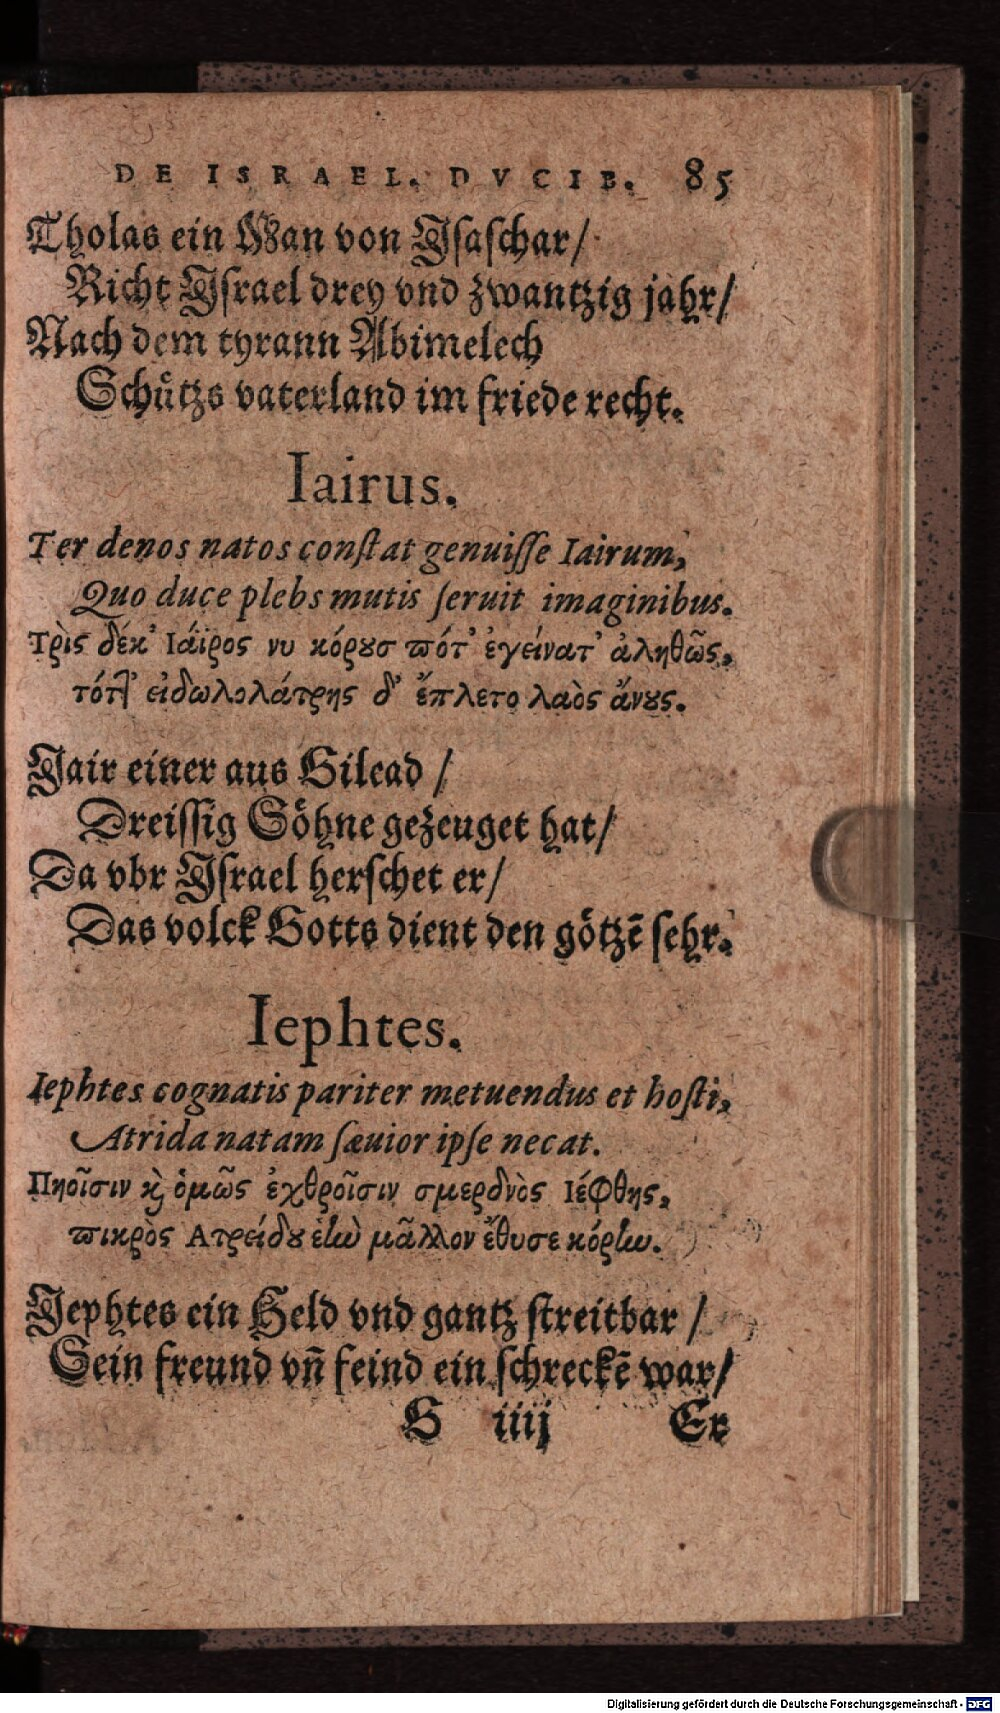 DE ISRAEL. DVCIB. 85
Tholas ein Man von Jsaschar/
Richt Jsrael drey vnd zwantzig jahr/
Nach dem tyrann Abimelech
Schuͤtzs vaterland im friede recht.
Iairus.
Ter denos natos conſtat genuiſſe Iairum,
Quo duce plebs mutis ſeruit imaginibus.
Τρὶς δέκ' Ιάϊρος νυ κόρȣσ πότ' ἐγείνατ' ἀληθῶς,
τότ' εἰδωλολάτρης δ' ἔπλετο λαὸς ἄνȣς.
Jair einer aus Gilead /
Dreiſſig Soͤhne gezeuget hat/
Da vbr Jſrael herſchet er/
Das volck Gotts dient den goͤtzē ſehr.
Iephtes.
Iephtes cognatis pariter metuendus et hoſti,
Atrida natam ſæuior ipſe necat.
Πηοῖσιν ϗ̀ ὁμῶς ἐχθροῖσιν σμερδνὸς Ιέφθης,
πικρὸς Ατρείδȣ ἑὴν μᾶλλον ἔθυσε κόρην.
Jephtes ein Held vnd gantz ſtreitbar /
Sein freund vn̄ feind ein ſchreckē war/
G iiij Er
Digitalisierung gefördert durch die Deutsche Forschungsgemeinschaft - DFG